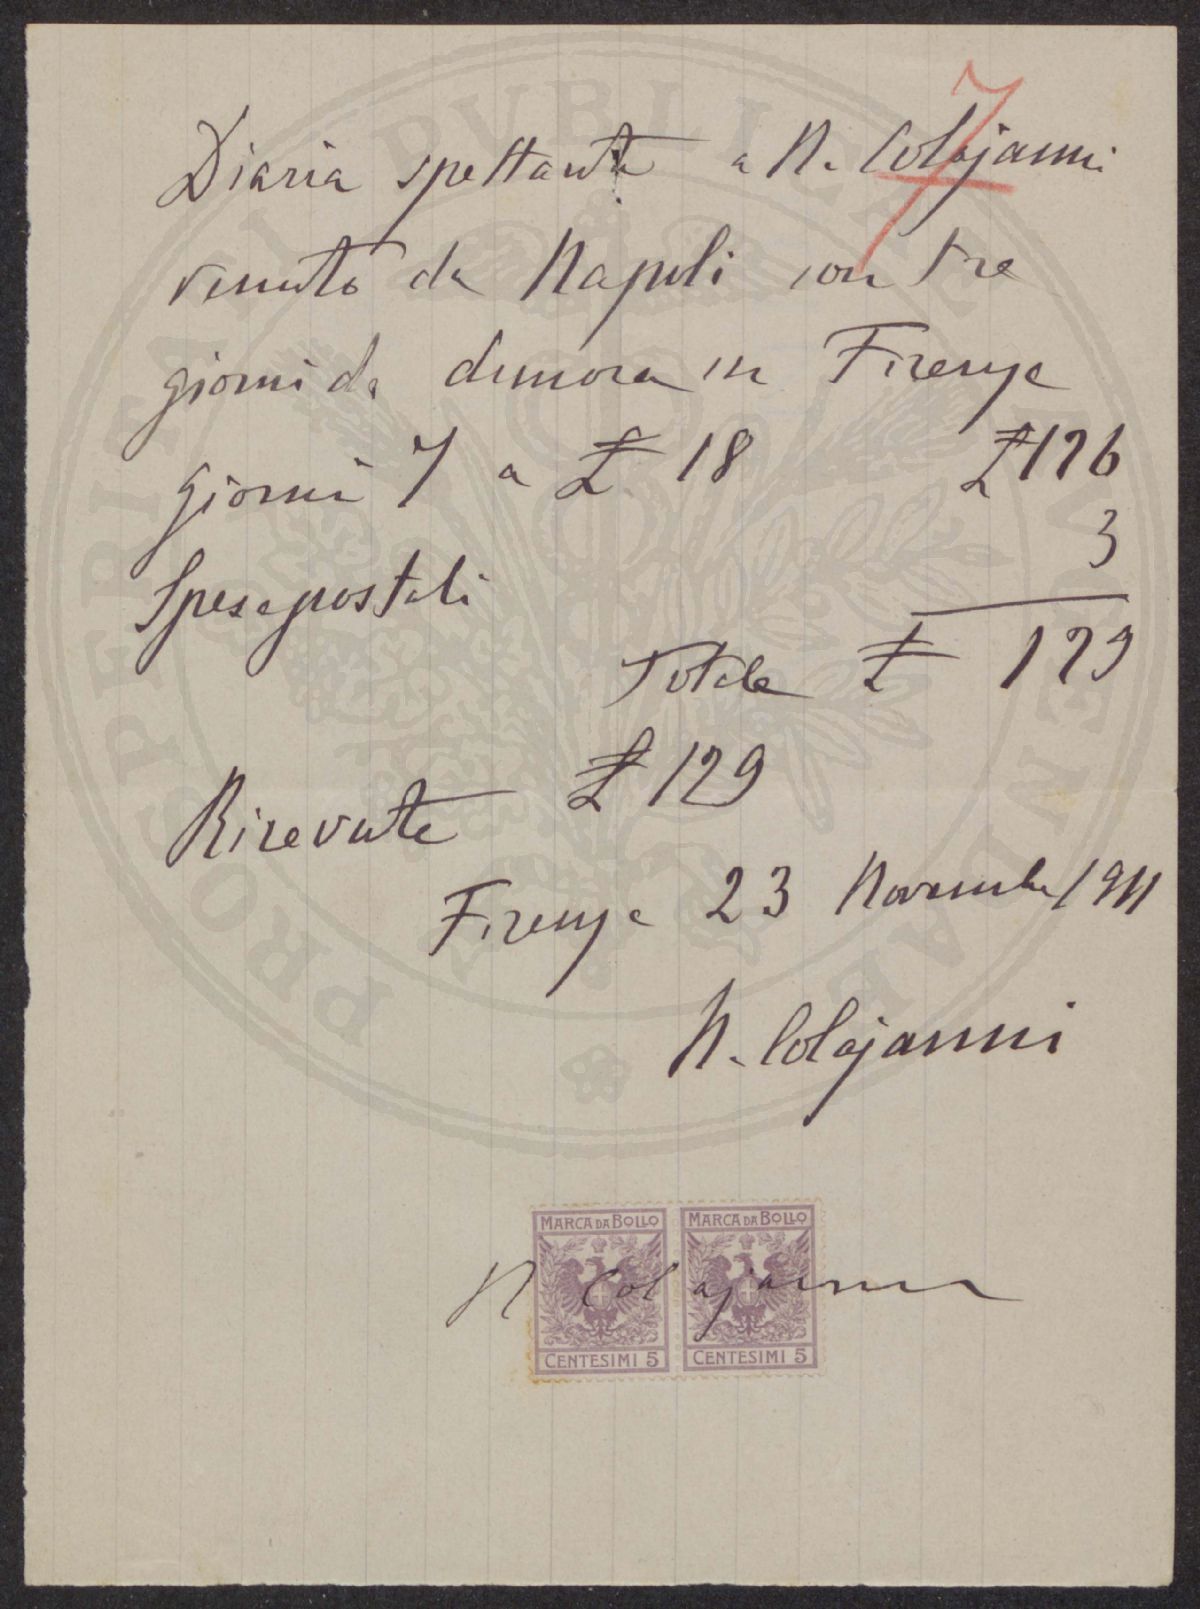 7
Diaria spettante a N. Colajanni
venuto da Napoli con tre
giorni di dimora in Firenze
giorni 7 a £ 18 £ 126
Spese postali 3
Totale £ 129
Ricevute £ 129
Firenze 23 Novembre 1911
N. Colajanni
MARCA DA BOLLO MARCA DA BOLLO
N Colajanni
CENTESIMI 5 CENTESIMI 5